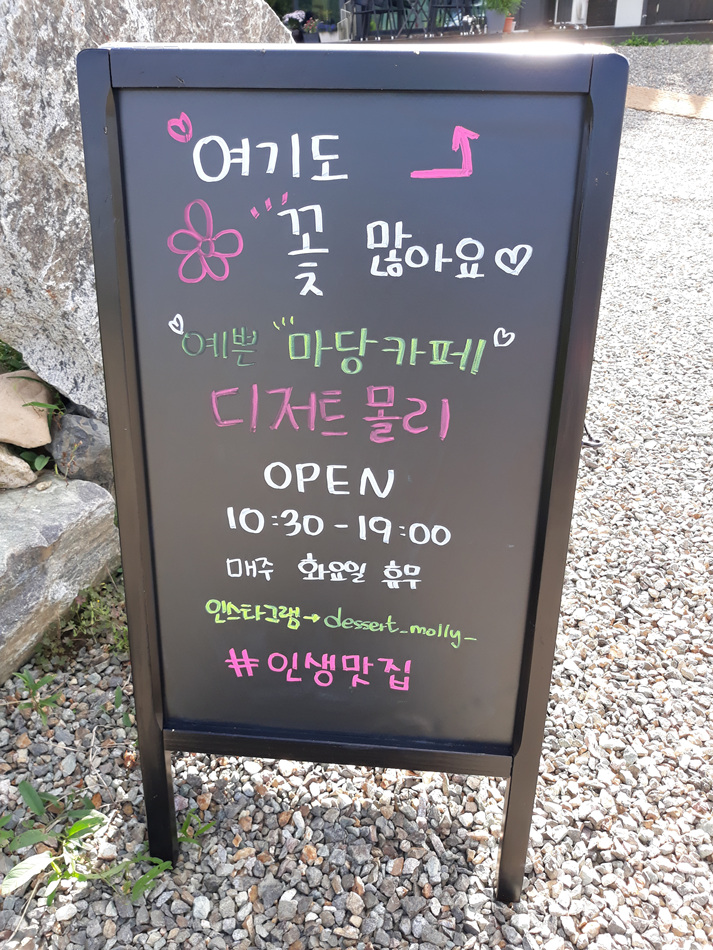 여기도
꽃 많아요
예쁜 마당카페
디저트 몰리
OPEN
10:30-19:00
매주 화요일 휴무
인스타그램→dessert_molly_
#인생맛집